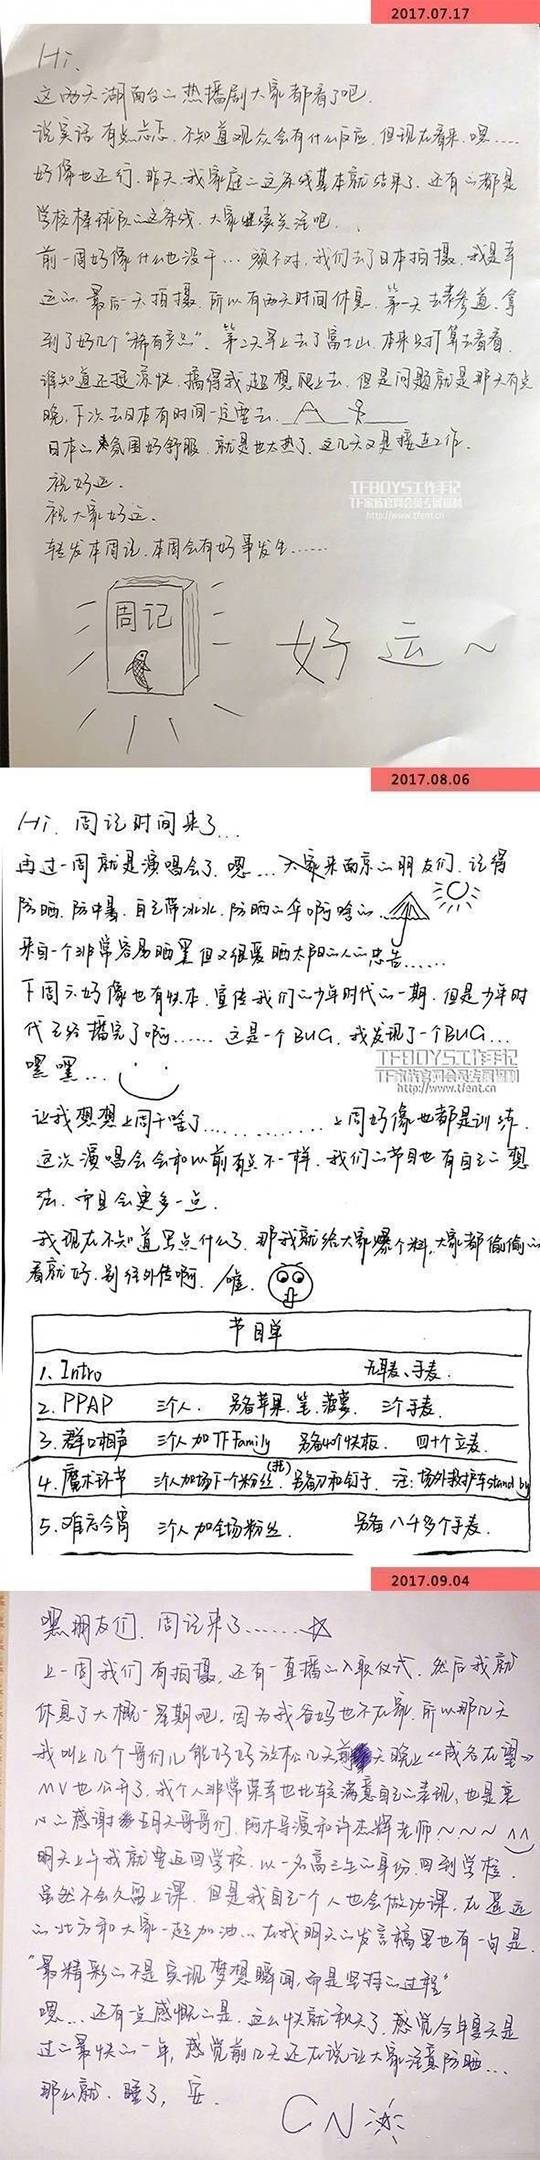 2017.07.17
Hi.
这两天湖南台的热播剧大家都看了吧.
说实话 有点忐忑. 不知道观众会有什么反应. 但现在看来. 嗯......
好像也还行. 昨天.我家庭的这条线基本就结束了. 还有的都是
学校棒球队的这条线. 大家继续关注吧.
前一周好像什么也没干... 额不对. 我们去了日本拍摄. 我是幸
运的. 最后一天拍摄. 所以有两天时间休息. 第一天去表参道. 拿
到了好几个"稀有产品". 第二天早上去了富士山. 本来只打算去看看.
谁知道还挺凉快. 搞得我超想爬上去. 但是问题就是那天有点
晚. 下次去日本有时间一定要去.
日本的氛围好舒服. 就是也太热了. 这几天又是接连工作.
祝好运.
祝大家好运.
转发本周记. 本周会有好事发生......
TFBOYS工作手记
TF家族官网会员专属福利
http://www.tfent.cn
周记
好运~
2017.08.06
Hi. 周记时间来了...
再过一周就是演唱会了. 嗯... 来南京的朋友们. 记得
防晒. 防中暑. 自己带冰水. 防晒的伞啊啥的..
来自一个非常容易晒黑但又很爱晒太阳的人的忠告......
下周六好像也有快本. 宣传我们的少年时代的一期. 但是少年时
代已经播完了啊...... 这是一个BUG. 我发现了一个BUG...
嘿嘿...
TFBOYS工作手记
TF家族官网会员专属福利
http://www.tfent.cn
让我想想上周干啥了............ 上周好像也都是训练.
这次演唱会会和以前有点不一样. 我们的节目也有自己的想
法. 而且会更多一点.
我现在不知道写点什么了. 那我就给大家爆个料. 大家都偷偷的
看就好. 别往外传啊.
节目单
1. Intro 无耳麦、手麦.
2. PPAP 三个人. 另备苹果.笔.菠萝. 三个手麦.
3. 群口相声 三个人加TFfamily 另备40个快板. 四十个立麦.
4. 魔术环节 三个人加场下一个粉丝. 另备刀和钉子. 注: 场外救护车stand by
5. 难忘今宵 三个人加全场粉丝. 另备八千多个手麦.
2017.09.04
嘿朋友们. 周记来了......
上一周我们有拍摄. 还有一直播的入驻仪式. 然后我就
休息了大概一星期吧. 因为我爸妈也不在家. 所以那几天
我叫上几个哥们儿能好好放松几天 前天晚上《成名在望》
MV也公开了. 我个人非常荣幸也比较满意自己的表现. 也是衷
心的感谢五月天哥哥们. 阿木导演和许杰辉老师~~~~
明天上午我就要返回学校. 以一名高三生的身份. 回到学校.
虽然不会久留上课. 但是我自己一个人也会做功课. 在遥远
的北方和大家一起加油.. 在我明天的发言稿里也有一句是.
"最精彩的不是实现梦想瞬间, 而是坚持的过程"
嗯... 还有点感慨的是. 这么快就秋天了. 感觉今年夏天是
过的最快的一年. 感觉前几天还在说让大家注意防晒...
那么就. 睡了. 安.
CN